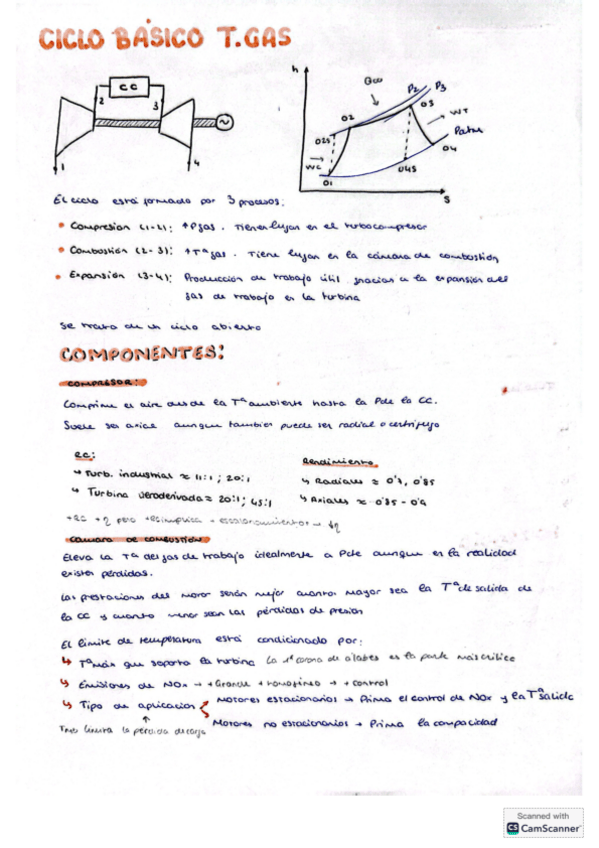 CICLO BÁSICO T.GAS
CC
2
3
1
4
h
Qcc
P2
P3
02
03
WT
02s
Patm
WC
04
04s
01
s
El ciclo está formado por 3 procesos:
• Compresión (1-2): +Pgas. Tienen lugar en el turbocompresor
• Combustión (2-3): +Tª gas. Tiene lugar en la cámara de combustión
• Expansión (3-4): Producción de trabajo útil gracias a la expansión del
gas de trabajo en la turbina
Se trata de un ciclo abierto
COMPONENTES:
COMPRESOR:
Comprime el aire desde la Tª ambiente hasta la P de la CC.
Suele ser axial aunque también puede ser radial o centrífugo
RC:
↳ Turb. industrial ≈ 11:1 ; 20:1
↳ Turbina aeroderivada ≈ 20:1 ; 45:1
Rendimiento
↳ Radiales ≈ 0'7, 0'85
↳ Axiales ≈ 0'85 - 0'9
+RC +η pero → escalonamientos → ↓η
CÁMARA DE COMBUSTIÓN
Eleva la Tª del gas de trabajo idealmente a P cte aunque en la realidad
existen pérdidas.
Las prestaciones del motor serán mejor cuanto mayor sea la Tª de salida de
la CC y cuanto menor sean las pérdidas de presión
El límite de temperatura está condicionado por:
↳ Tª máx que soporta la turbina La 1ª corona de álabes es la parte más crítica
↳ Emisiones de NOx → + Grande + homogéneo → + control
↳ Tipo de aplicación
Motores estacionarios → Prima el control de NOx y la Tª salida
Motores no estacionarios → Prima la compacidad
limita la pérdida de carga
Scanned with
CS CamScanner